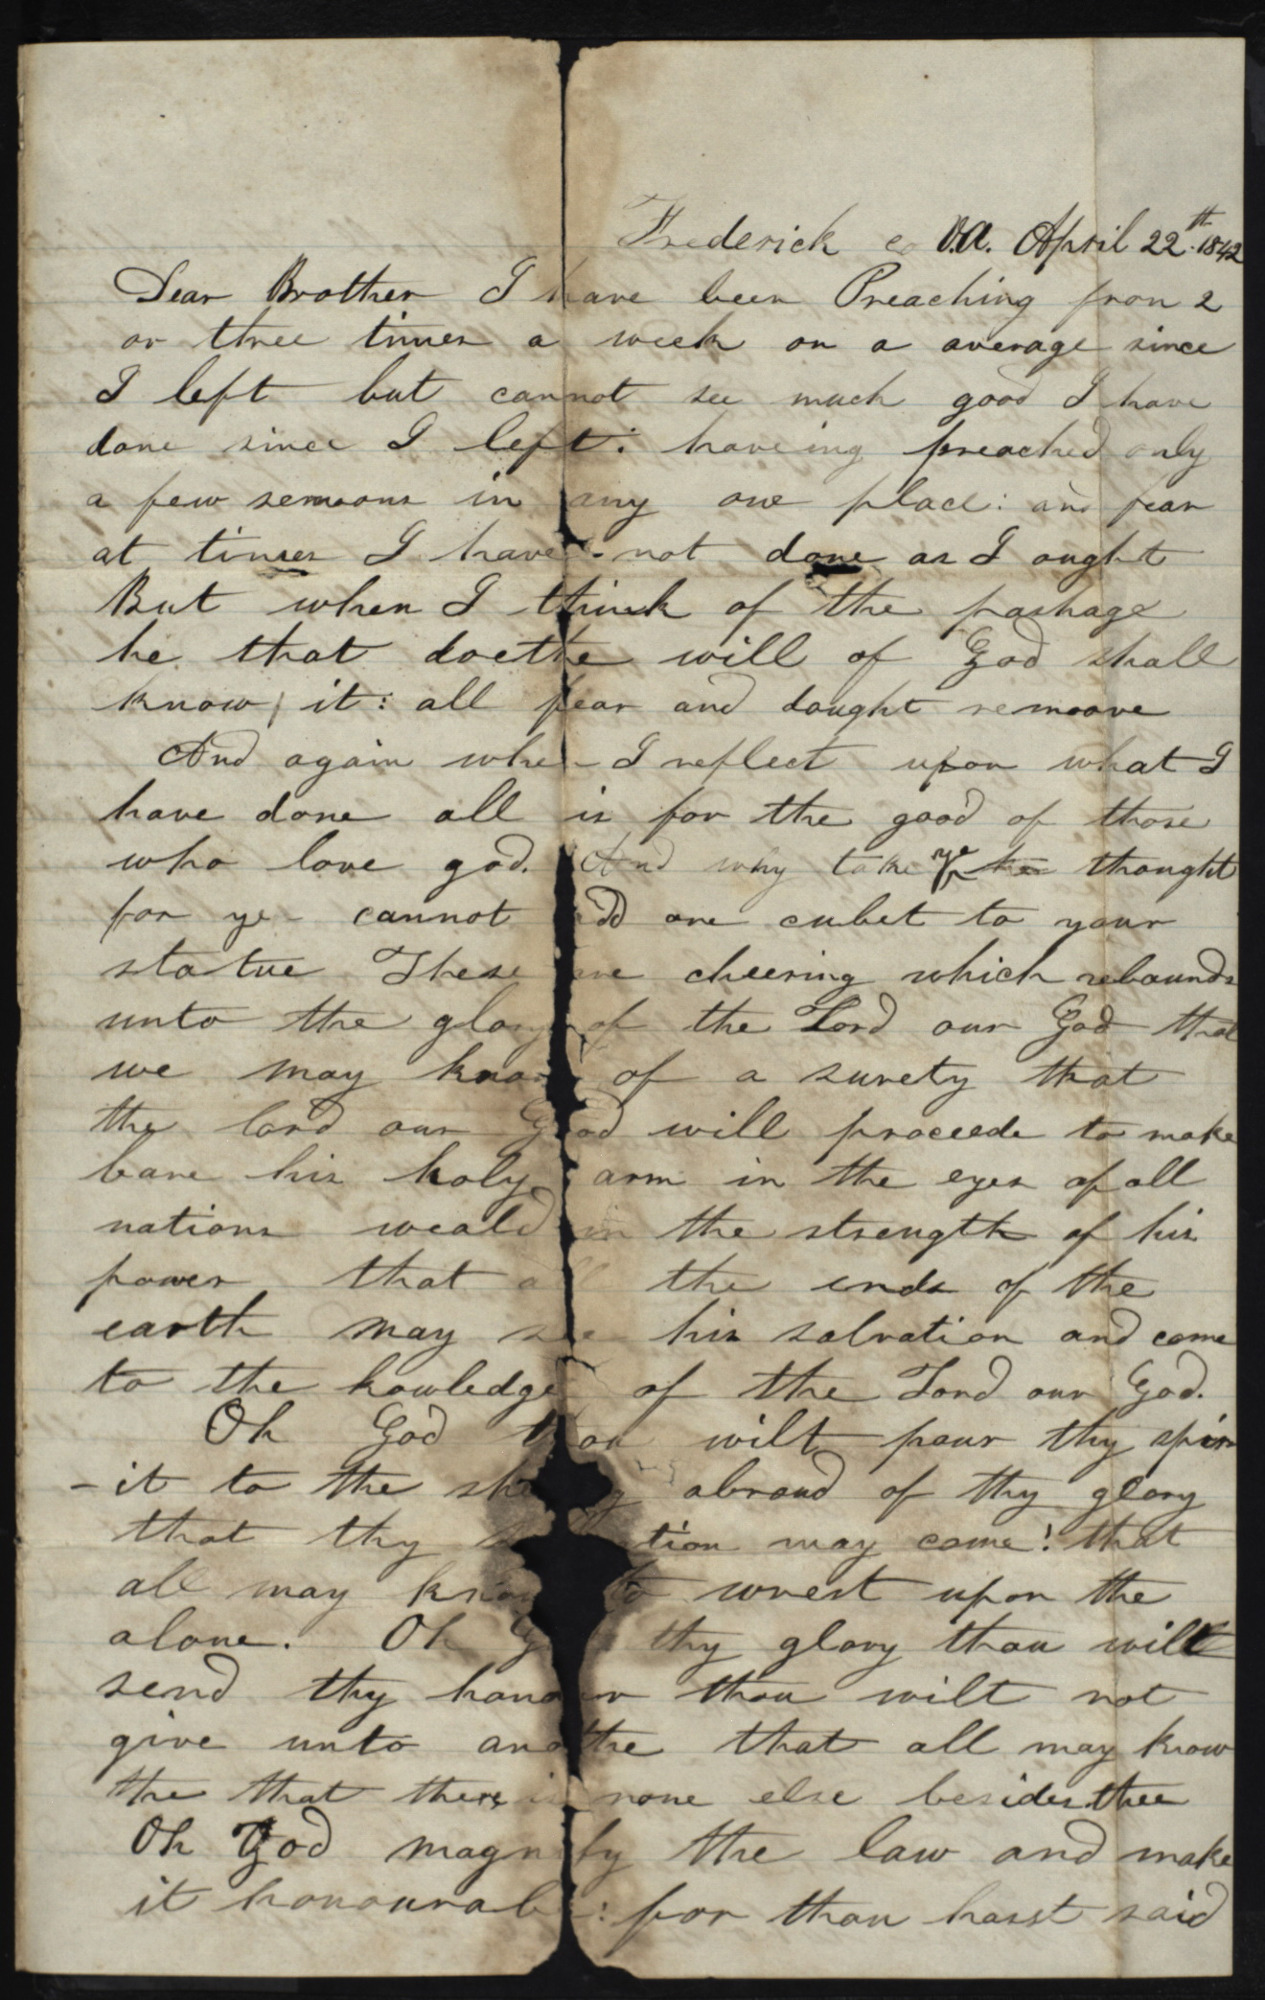 Frederick co V.a. April 22th. 1842
Dear Brother I have been Preaching from 2
or three times a week on a average since
I left but cannot see much good I have
done since I left: haveing preached only
a few sermons in any one place: and fear
at times I have not done as I ought
But when I think of the pashage
he that doethe will of God shall
know it: all fear and dought remoove
And again when I reflect upon what I
have done all is for the good of those
who love god. And why take ye thought
for ye cannot add one cubet to your
statue These are cheering which rebounds
unto the glory of the Lord our God that
we may know of a surety that
the lord our God will proceede to make
bare his holy arm in the eyes of all
nations weald in the strength of his
power that all the ends of the
earth may see his salvation and come
to the kowledge of the Lord our God.
Oh God thou wilt pour thy spir
-it to the sheding abroad of thy glory
that thy tion may come! that
all may know to wrest upon the
alone. Oh God thy glory thou wilt
send thy honour thou wilt not
give unto anothe that all may know
the that there is none else besides thee
Oh God magnify the law and make
it honourabl: for thou hasst said